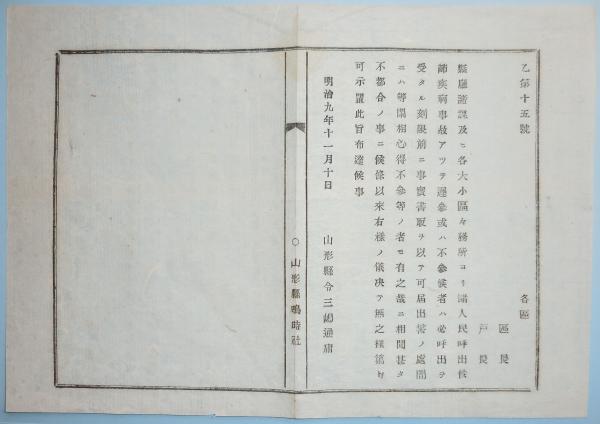 乙第十五號
各區
區長
戸長
縣廳諸課及ヒ各大小區々務所ヨリ諸人民呼出候
節疾病事故アツテ遲參或ハ不參候者ハ必呼出ヲ
受タル刻限前ニ事實書取ヲ以テ可届出筈ノ處間
ニハ等閑相心得不參等ノ者モ有之哉ニ相聞甚タ
不都合ノ事ニ候條以來右樣ノ儀决テ無之樣
可示置此旨布達候事
明治九年十一月十日
山形縣令三島通庸
〇山形縣鳴時社